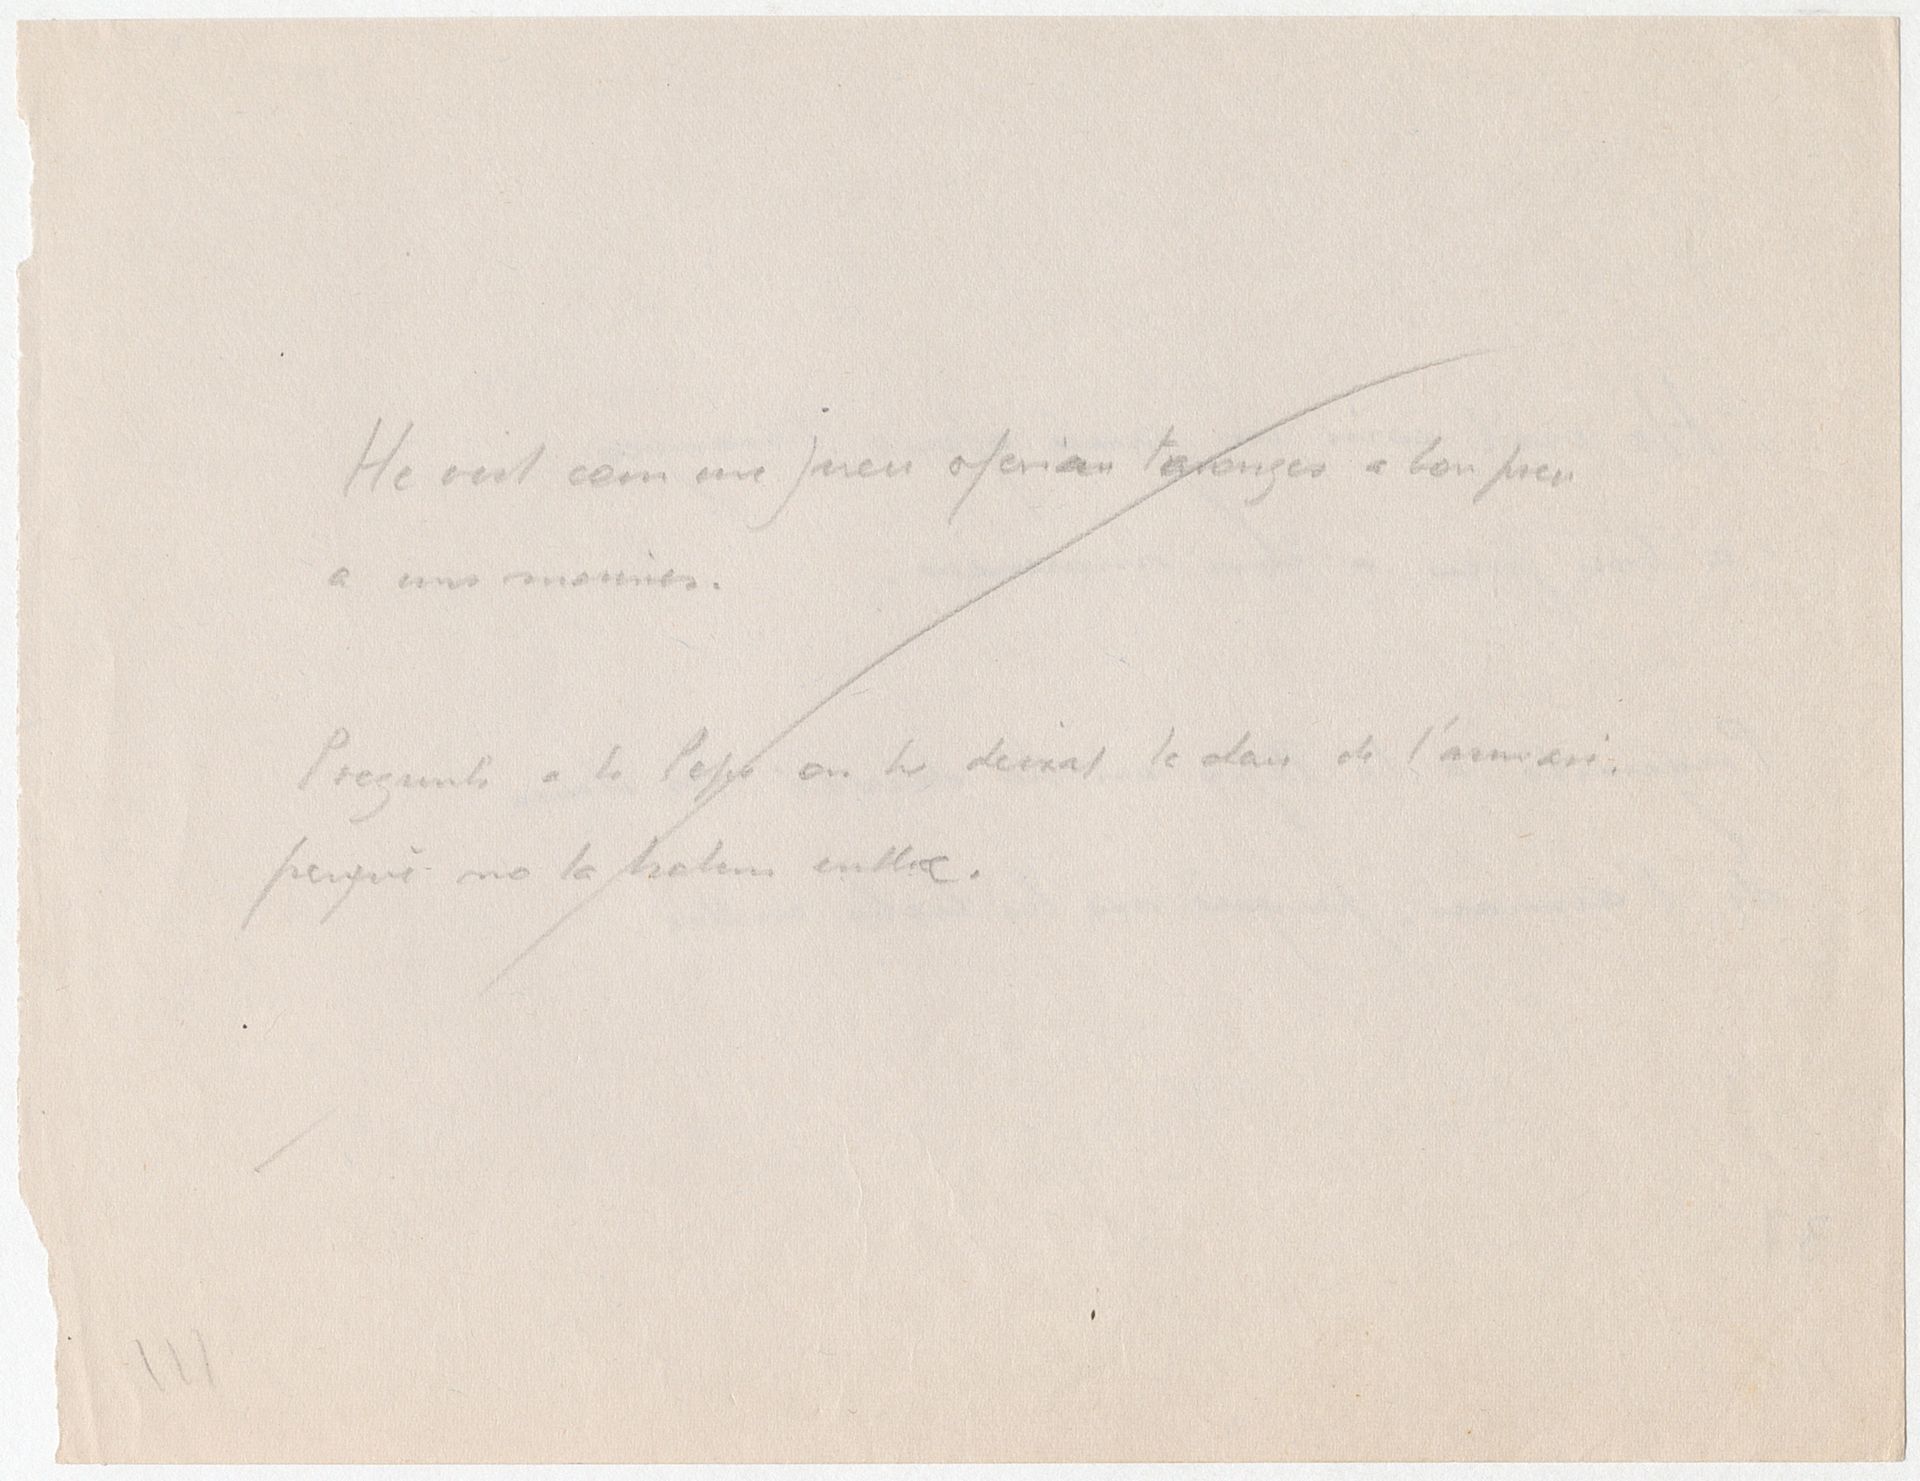 He vist com una jueu oferian taronges a bon preu
a uns marines.
Pregunta a la Pepa on ha deixat la clau de l'armari.
perquè no la trobem enlloc.
111